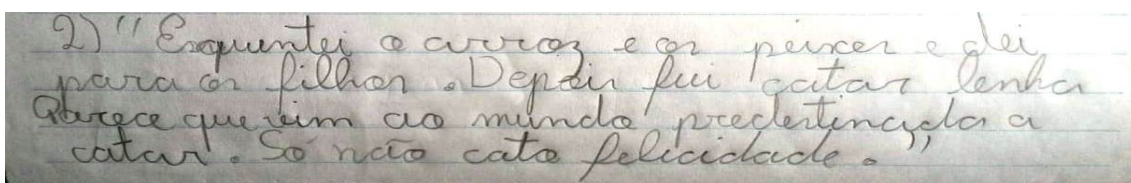 2) "Esquentei o arroz e os peixes e dei
para os filhos. Depois fui catar lenha
Parece que vim ao mundo predestinada a
catar. Só não cato felicidade."